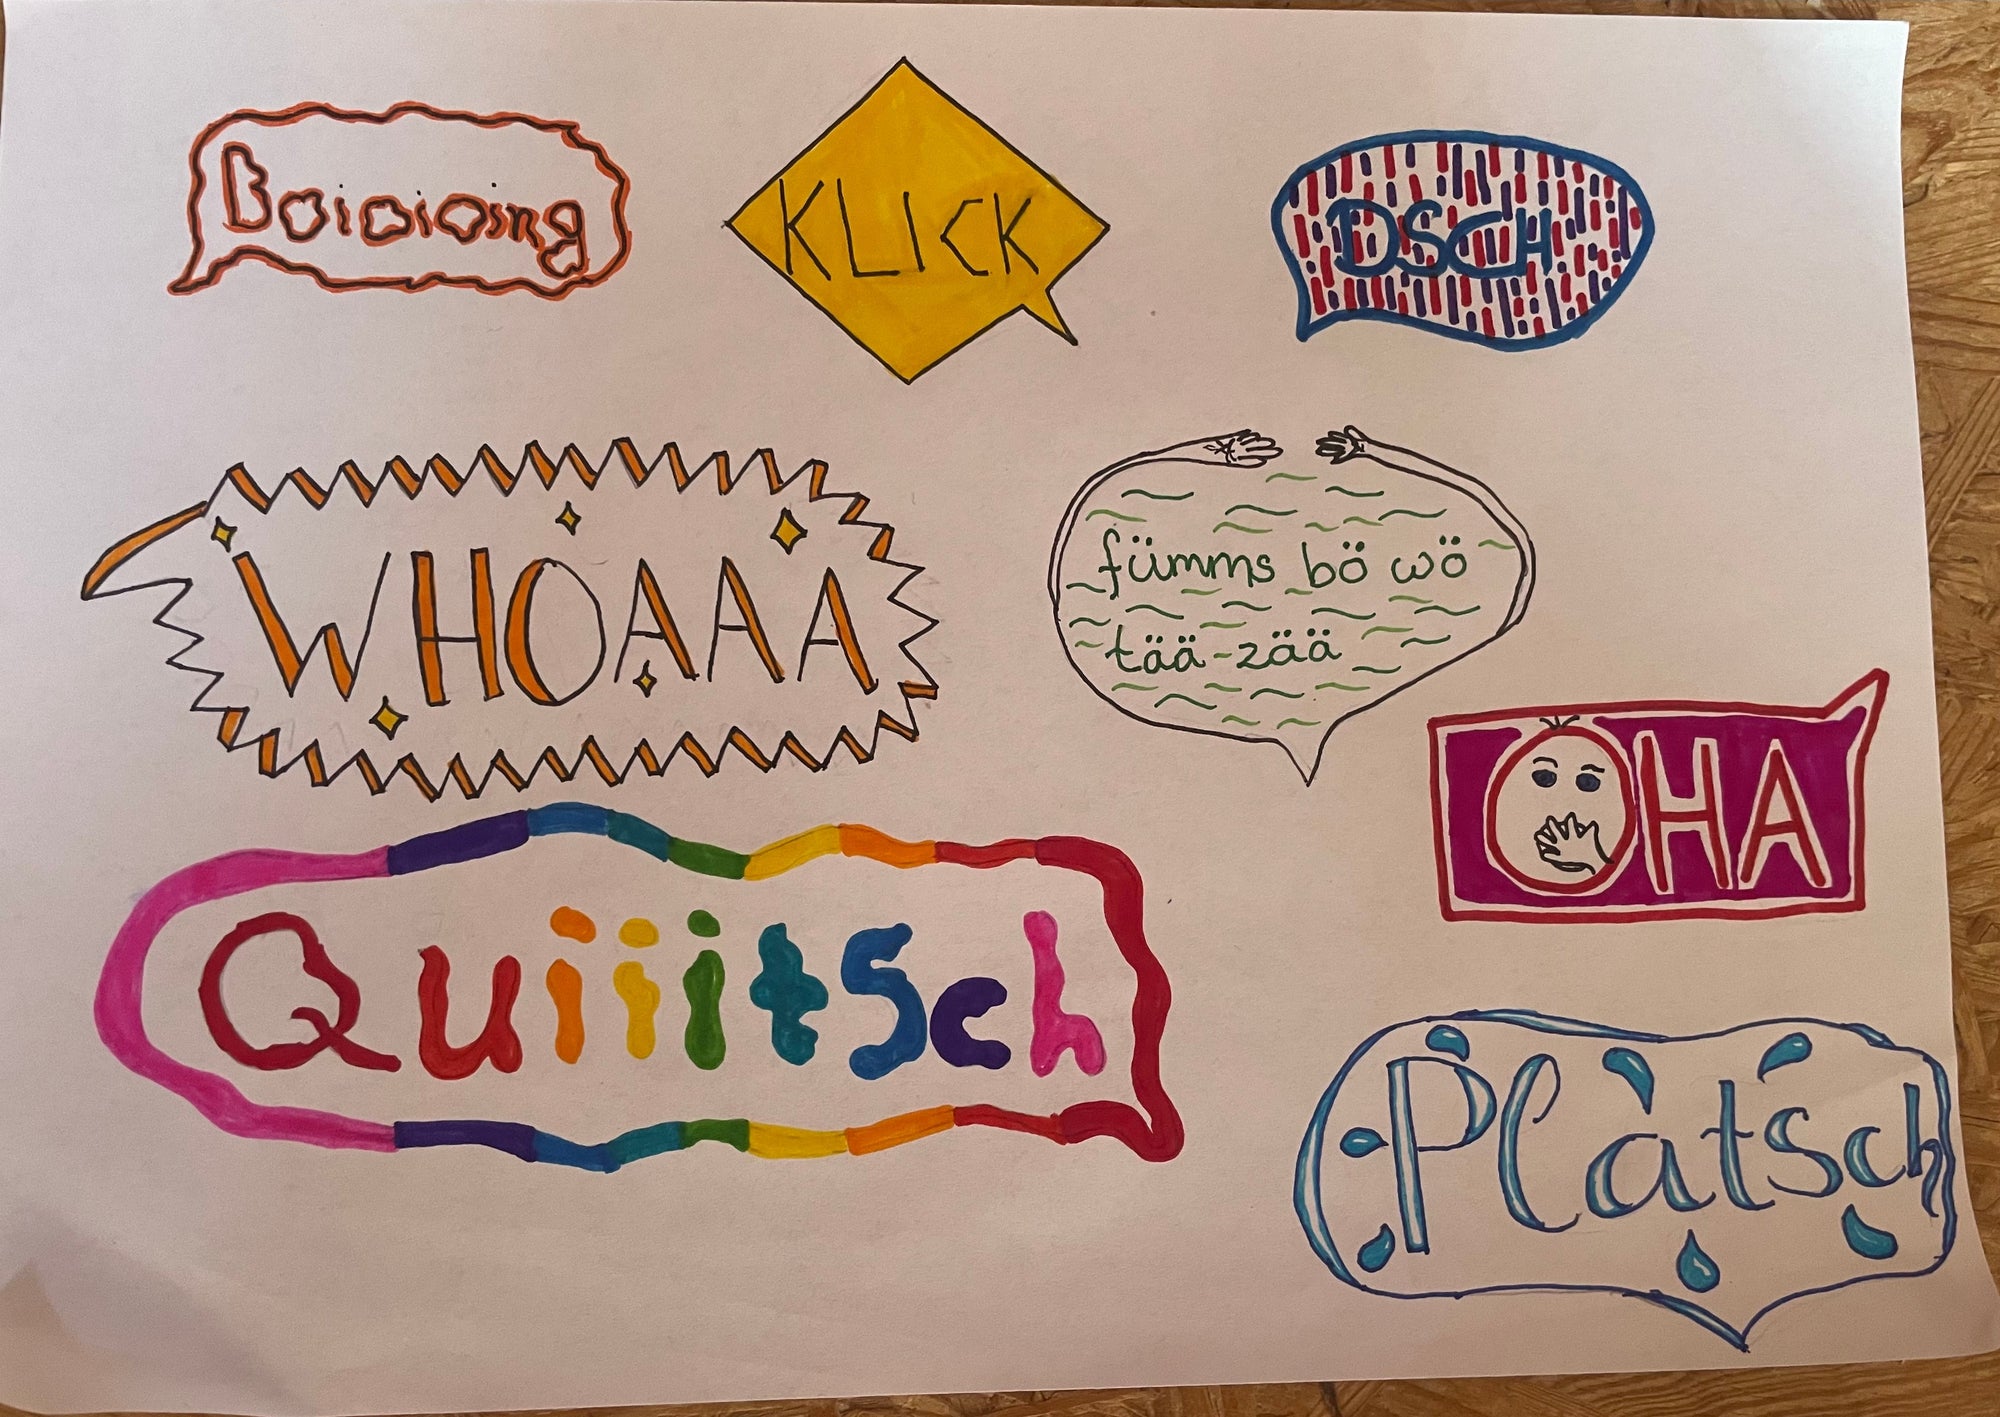 Boioioing
KLICK
DSCH
WHOAAA
fümms bö wö
tää-zää
OHA
Quiiitsch
Platsch